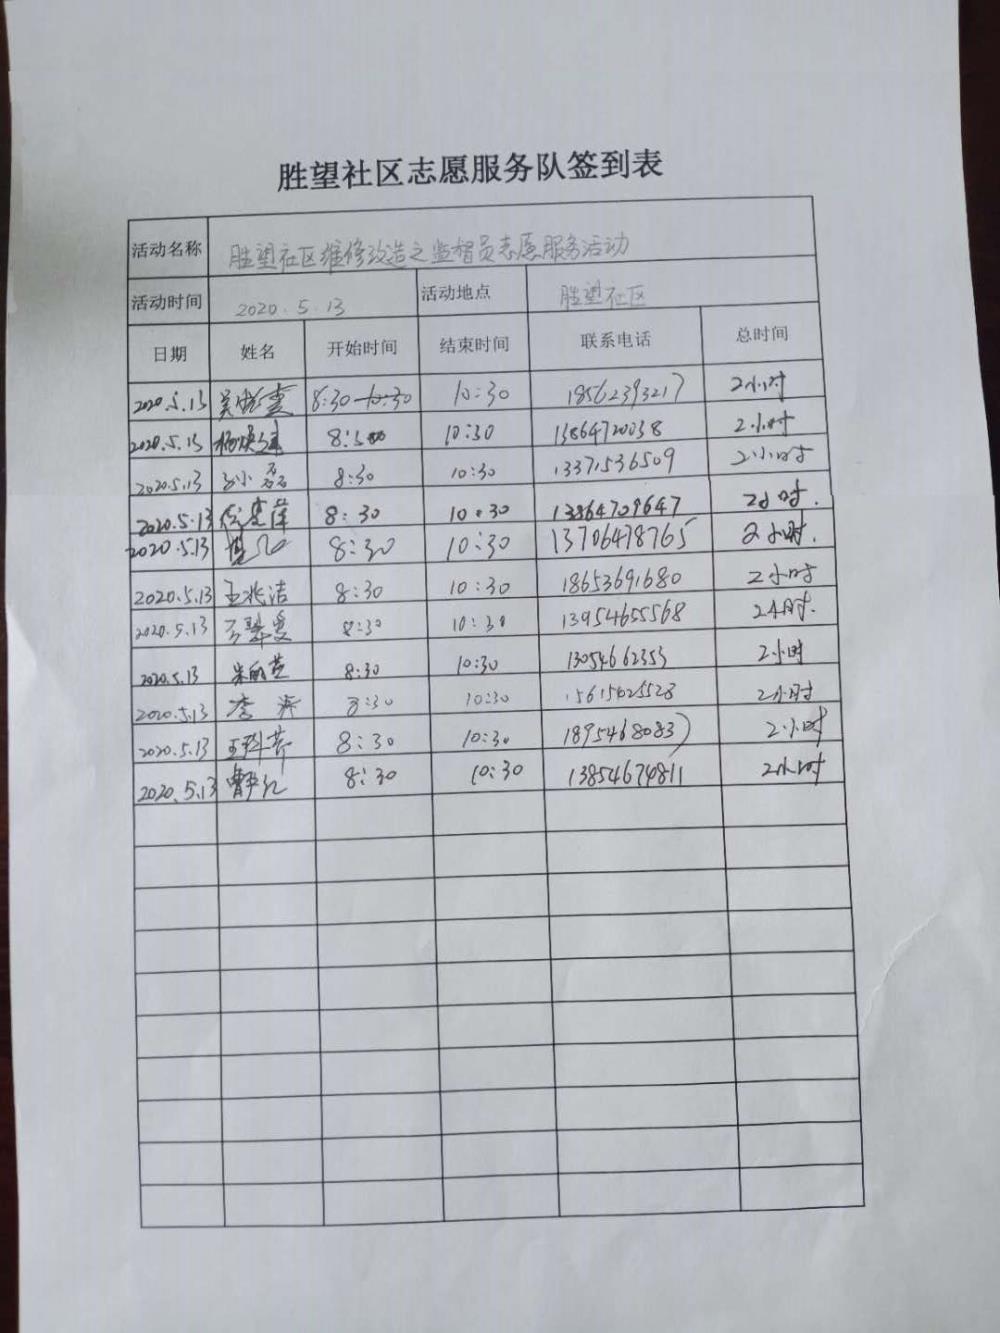 胜望社区志愿服务队签到表
活动名称 胜望社区维修改造之监督员志愿服务活动
活动时间 2020.5.13 活动地点 胜望社区
日期 姓名 开始时间 结束时间 联系电话 总时间
2020.5.13 8:30 10:30 10:30 18562393217 2小时
2020.5.13 10:30 13864720038 2小时
2020.5.13 孙小磊 8:30 10:30 13371536509 2小时
2020.5.13 8:30 10:30 13864709647 2小时.
2020.5.13 8:30 10:30 13706478765 2小时.
2020.5.13 王兆洁 8:30 10:30 18653691680 2小时
2020.5.13 8:30 10:30 13954655568 2小时.
2020.5.13 8:30 10:30 13054662353 2小时
2020.5.13 李 8:30 10:30 15615625528 2小时
2020.5.13 8:30 10:30 18954680837 2小时
2020.5.13 8:30 10:30 13854674811 2小时